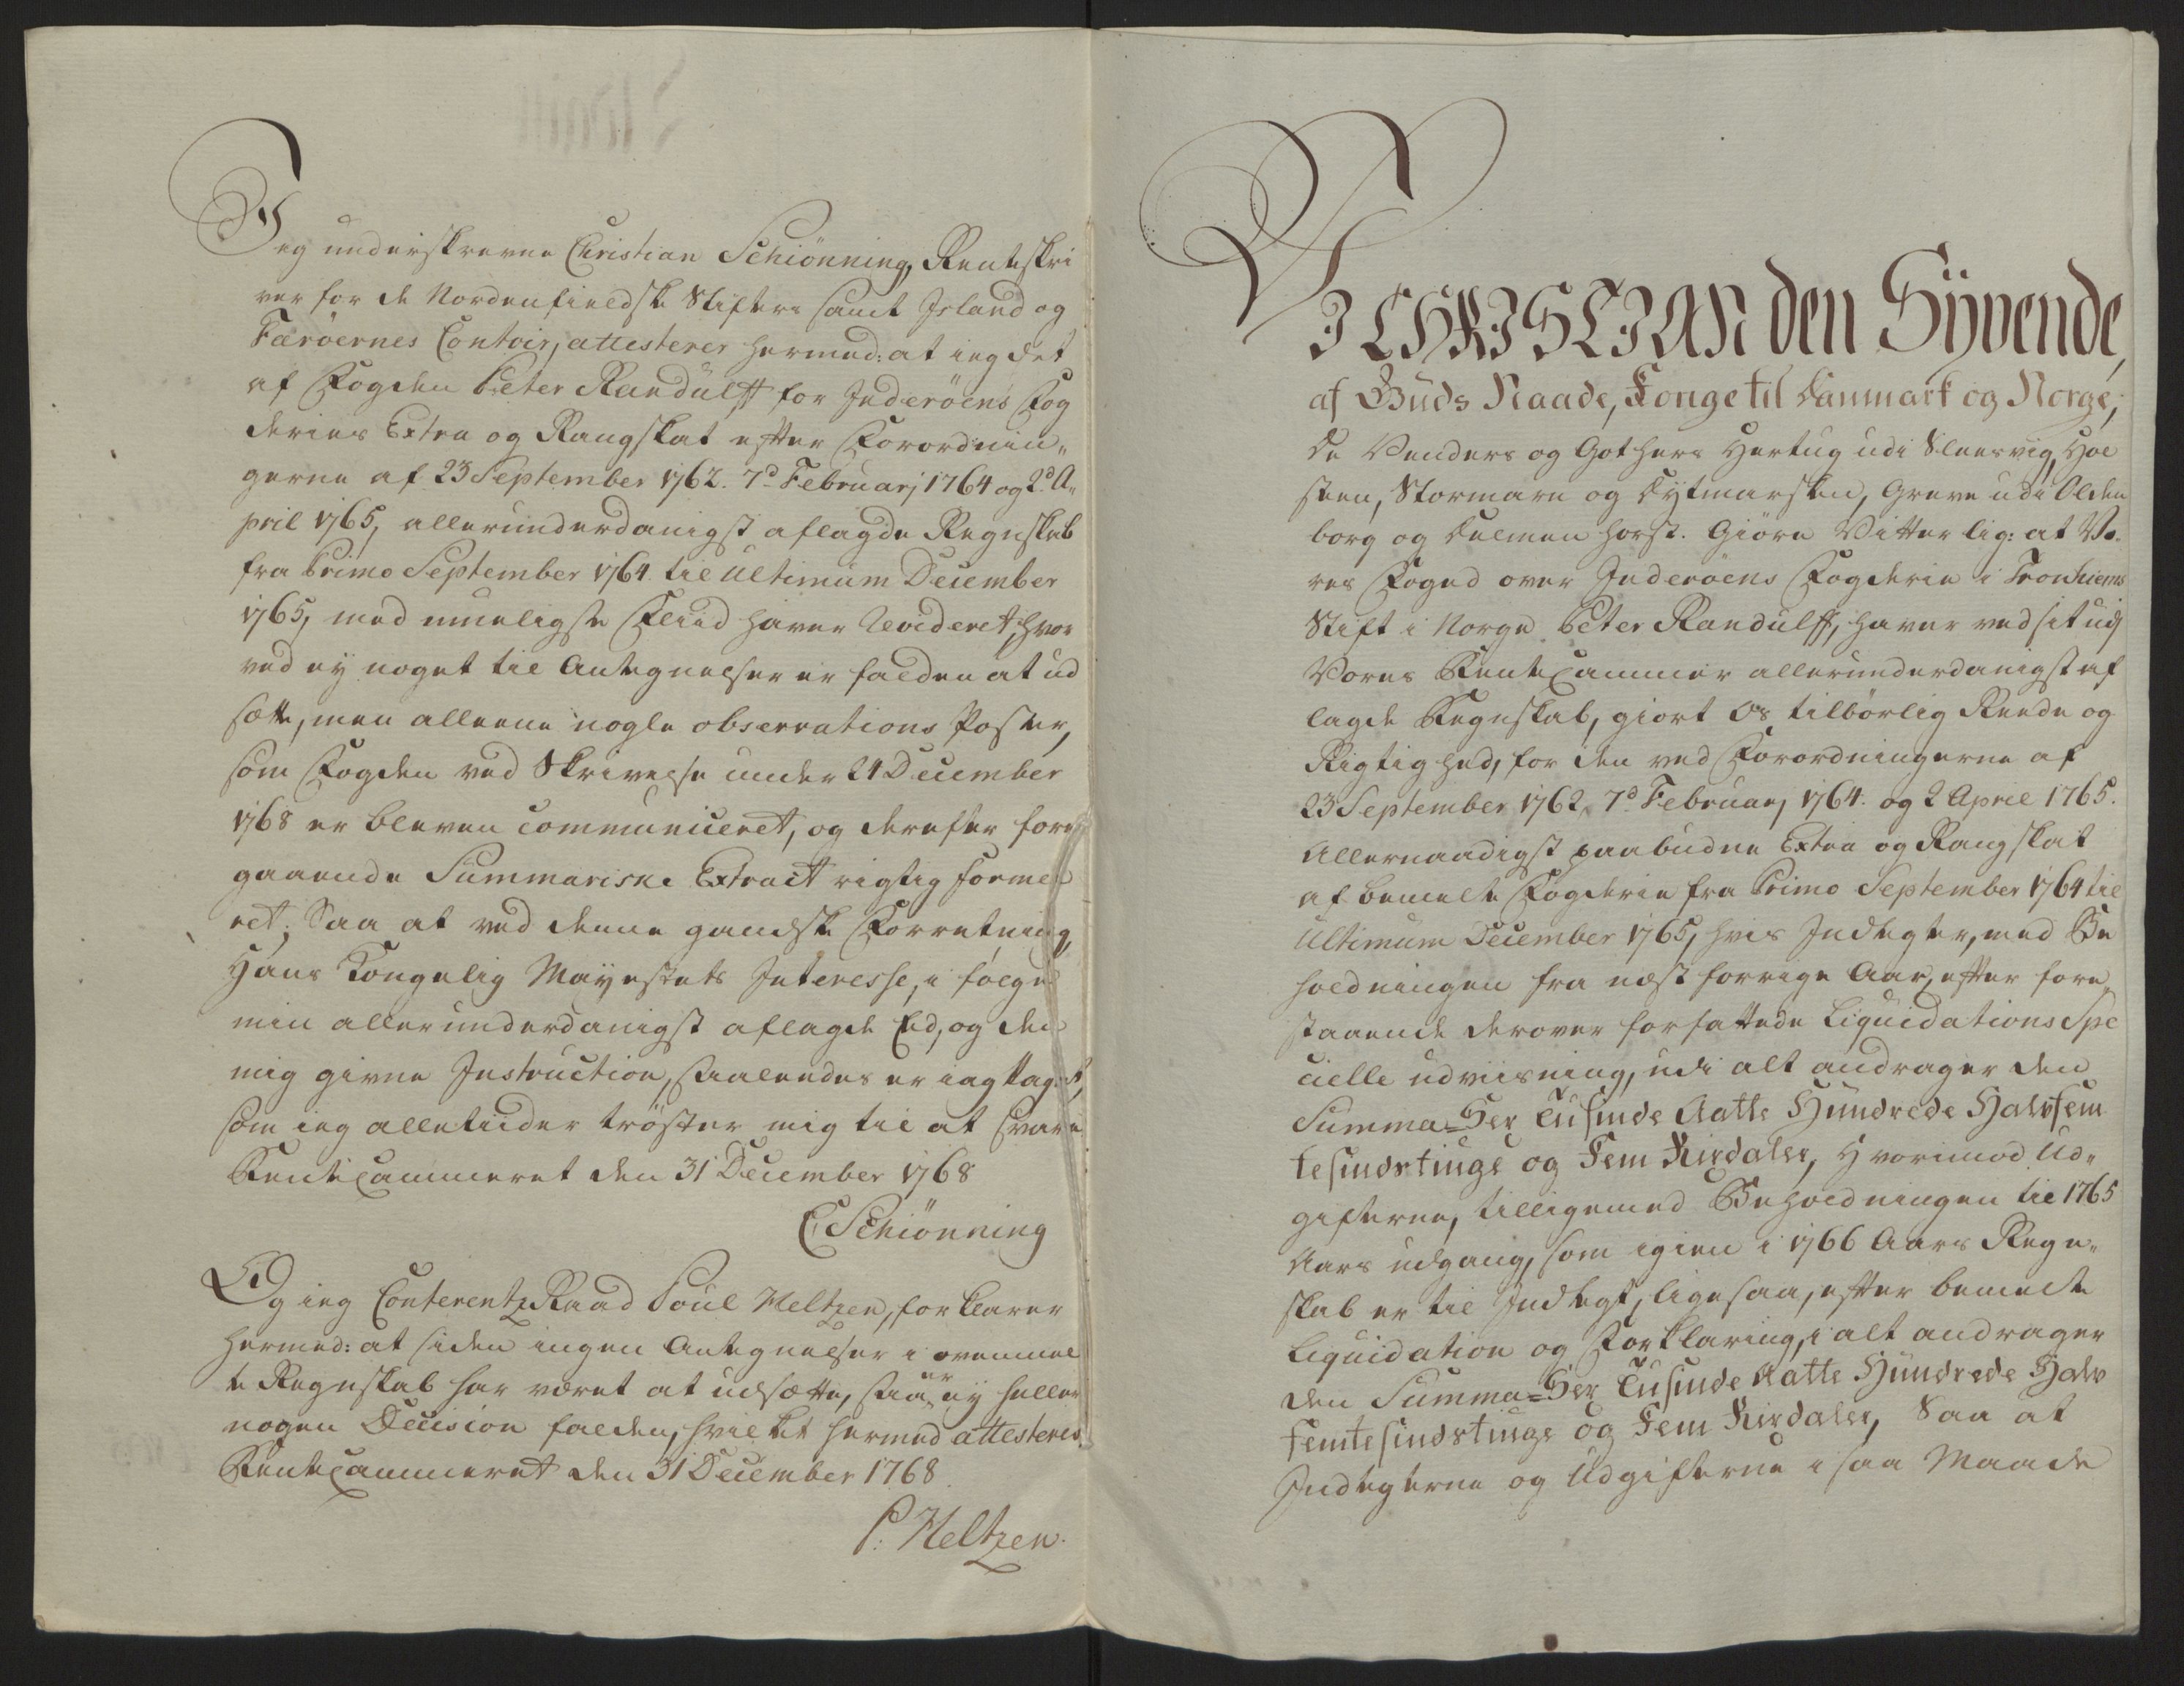 Jeg underskrevne Christian Schiönning, Renteskri
ver for de Nordenfieldske Stifters samt Island og
Færöernes Contoir, attesterer hermed: at ieg det
af Fogden Peter Randulff for Inderöens Fog
deries Extra og Rangskat efter Forordnin„
gerne af 23 September 1762. 7d Februarj 1764 og 2d A„
pril 1765, allerunderdanigst aflagde Regnskab
fra Primo September 1764. til Ultimum December
1765, med mueligste Fliid haver Revideret, hvor
ved ey noget til Antegnelser er falden at ud
sætte, men alleene nogle observations Poster,
som Fogden ved Skrivelse under 24 December
1768 er bleven communiceret, og derefter fore
gaaende Summariske Extract rigtig forme
ret; Saa at ved denne gandske Forretning,
Hans Kongelig Mayestets Interesse, i fölge
min allerunderdanigst aflagde Eed, og den
mig givne Instruction, saaleedes er iagttaget,
som ieg alletiider tröster mig til at svare
RenteCammeret den 31 December 1768
C Schiönning
Og ieg ConferentzRaad Poul Heltzen, forklarer
hermed: at siden ingen Antegnelser i ovenmel
te Regnskab har været at udsætte, saa er ey heller
nogen Decision falden, hvilket hermed attesteres.
RenteCammeret den 31 December 1768.
P: Heltzen.
VI CHRISTIAN den Syvende,
af Guds Naade, Konge til Danmark og Norge,
De Venders og Gothers Hertug udi Sleesvig, Hol
steen, Stormarn og Dytmarsken, Greve udi Olden
borg og Delmenhorst. Giöre Vitterlig: at Vo„
res Foged over Inderöens Fogderie i Tronhiems
Stift i Norge Peter Randulff, haver ved sit udj
Vores RenteCammer allerunderdanigst af
lagde Regnskab, giort Os tilbörlig Reede og
Rigtighed, for den ved Forordningerne af
23 September 1762. 7d Februarj 1764. og 2 April 1765.
Allernaadigst paabudne Extra og Rangskat
af bemelte Fogderie fra Primo September 1764 til
Ultimum December 1765, hvis Indtegter, med Be
holdningen fra næst forrige Aar, efter fore
staaende derover forfattede Liquidations Spe
cielle udviisning, udi alt andrager den
Summa = Sex Tusinde Aatte Hundrede Halvfem
tesindstiuge og Fem Rixdaler, Hvorimod Ud„
gifterne, tilligemed Beholdningen til 1765
Aars udgang, som igien i 1766 Aars Regn„
skab er til Indtegt, ligesaa, efter bemelte
Liquidation og Forklaring, i alt andrager
den Summa = Sex Tusinde Aatte Hundrede Halv
femtesindstiuge og Fem Rixdaler, Saa at
Indtegterne og Udgifterne i saa Maade